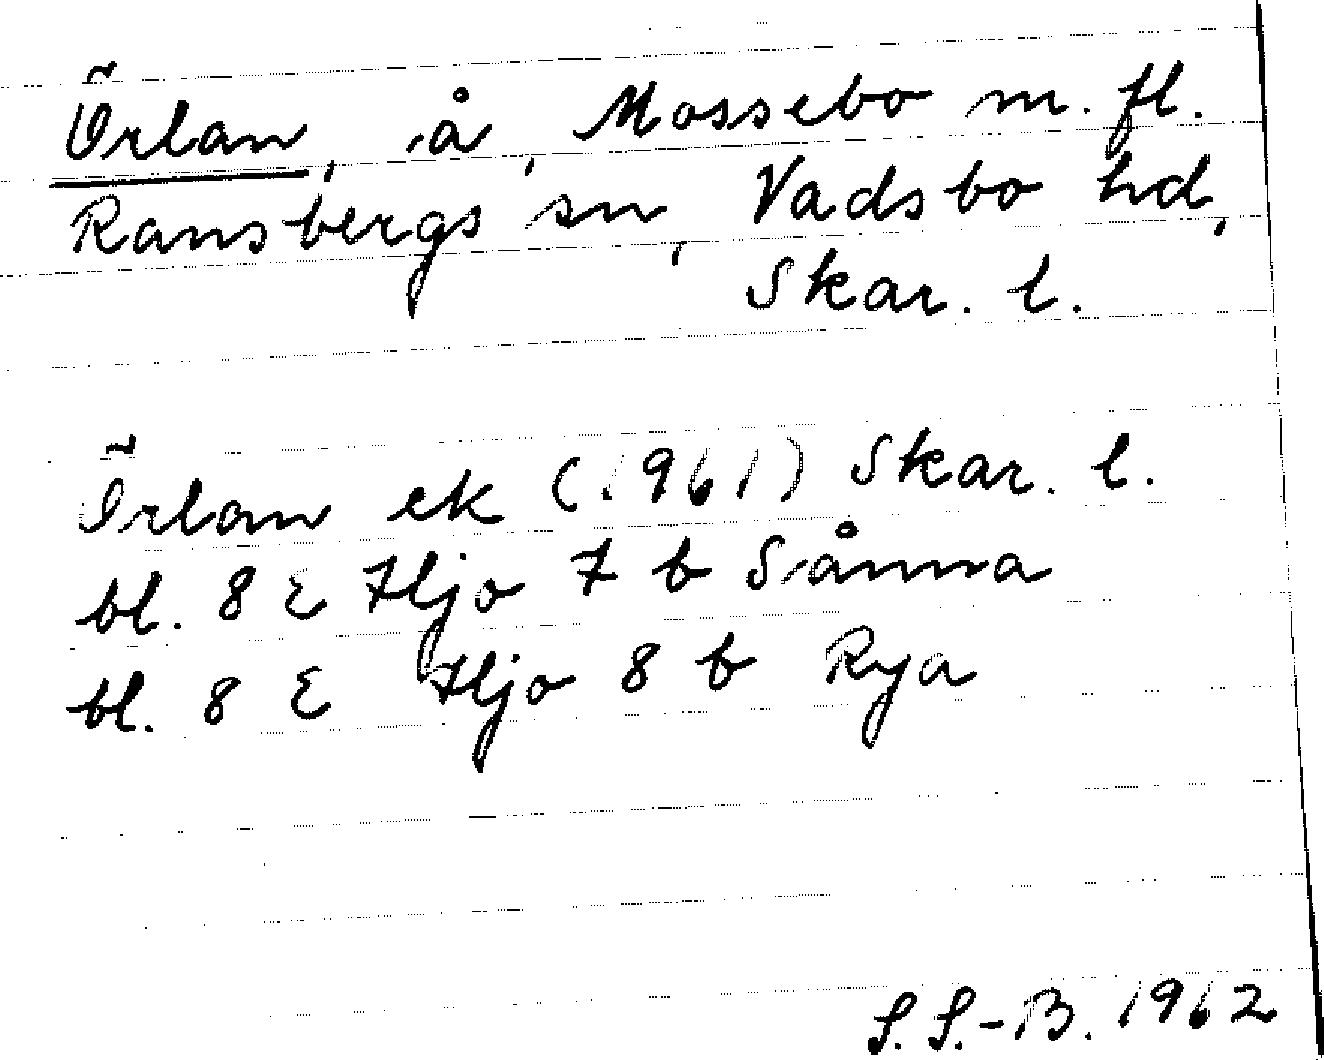 Örlan, å, Mossebo m. fl.
Ransbergs sn, Vadsbo hd,
Skar. l.
Örlan ek (1961) Skar. l.
bl. 8 E Hjo 7 b Sånna
bl. 8 E Hjo 8 b Rya
S. S.-B. 1962